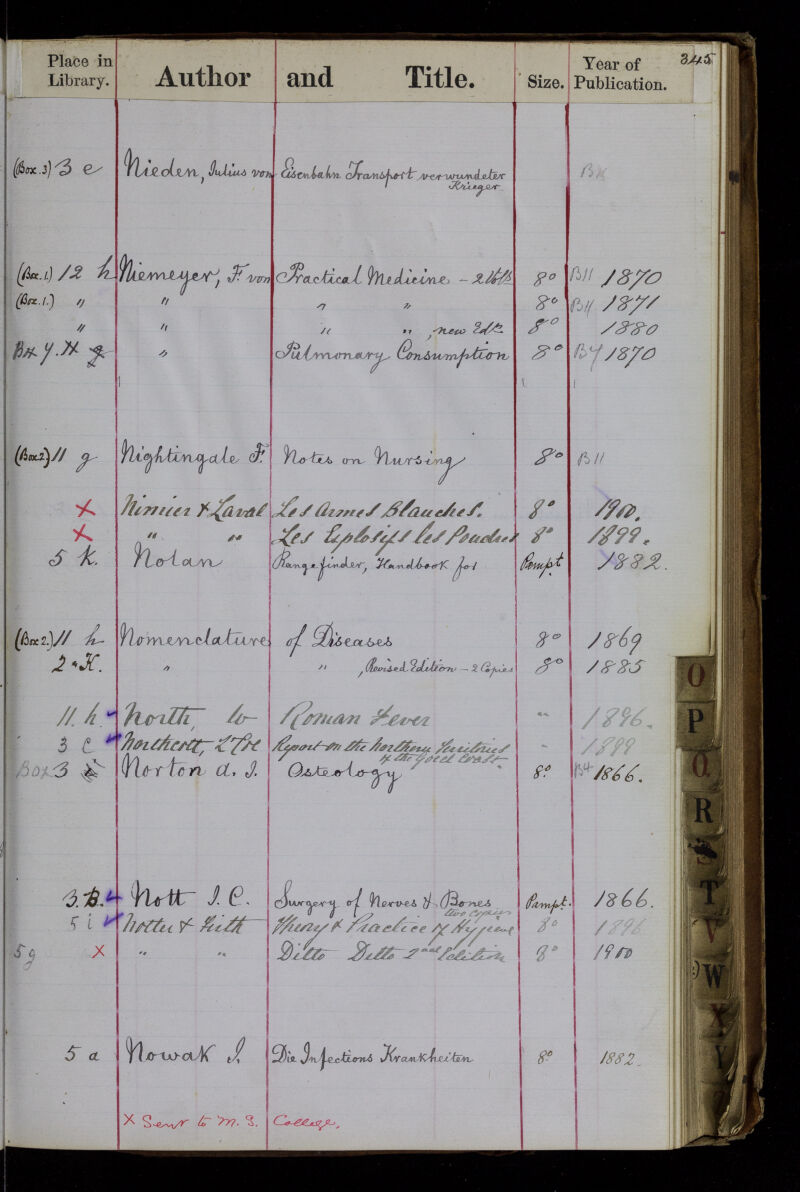 345
Place in Library. Author and Title. Size. Year of Publication.
(Box.3) 3 e Nieden, Julius von Eisenbahn Transport verwundeter Krieger
(Box.1.) 12 h Niemeyer, F. von Practical Medicine - 2 Vols 8o B11 1870
(Box.1.) " " " " 8o 1871
" " " " , new Edn 8o 1880
Bx Pulmonary Consumption 8o 1870
(Box 2) 11 g Nightingale F. Notes on Nursing 8o B11
X Nimier & Laval Les Armes Blanches. 8o 1900.
X " " Les Explosifs les Poudres 8o 1899.
5 K. Nolan Rangefinder, Handbook for Pampt 1882.
(Box 2.) 11 h Nomenclature of Diseases 8o 1869
2 K. " " , Revised Edition - 2 Copies 8o 1885
11. h North, Roman Fever " 1896.
3 c Northcott, Report on the Northern Territories of the Gold Coast - 1899
Box 3 Norton A. J. Osteology 8o. B4 1866.
3. B. Nott J. C. Surgery of Nerves & Bones Pampt. 1866.
two copies
5 i Notter & Firth Theory & Practice of Hygiene 8o 1896
5 g X " " Ditto Ditto 2nd Edition 8o 1900
5 a Nowak J. Die Infections Krankheiten 8o. 1882.
X Sent to M. S. College.
O
P
Q
R
T
V
W
X
Y